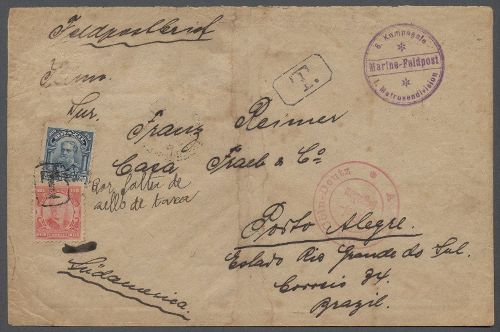 Feldpostbrief
6. Kompagnie
Marine-Feldpost
I. Matrosendivision
T.
Franz Reimer
Casa Fraeb & Cº
Por falta de
sello de taxa
Porto Alegre.
Estado Rio Grande do Sul.
Correio 34.
Brazil.
Südamerica.